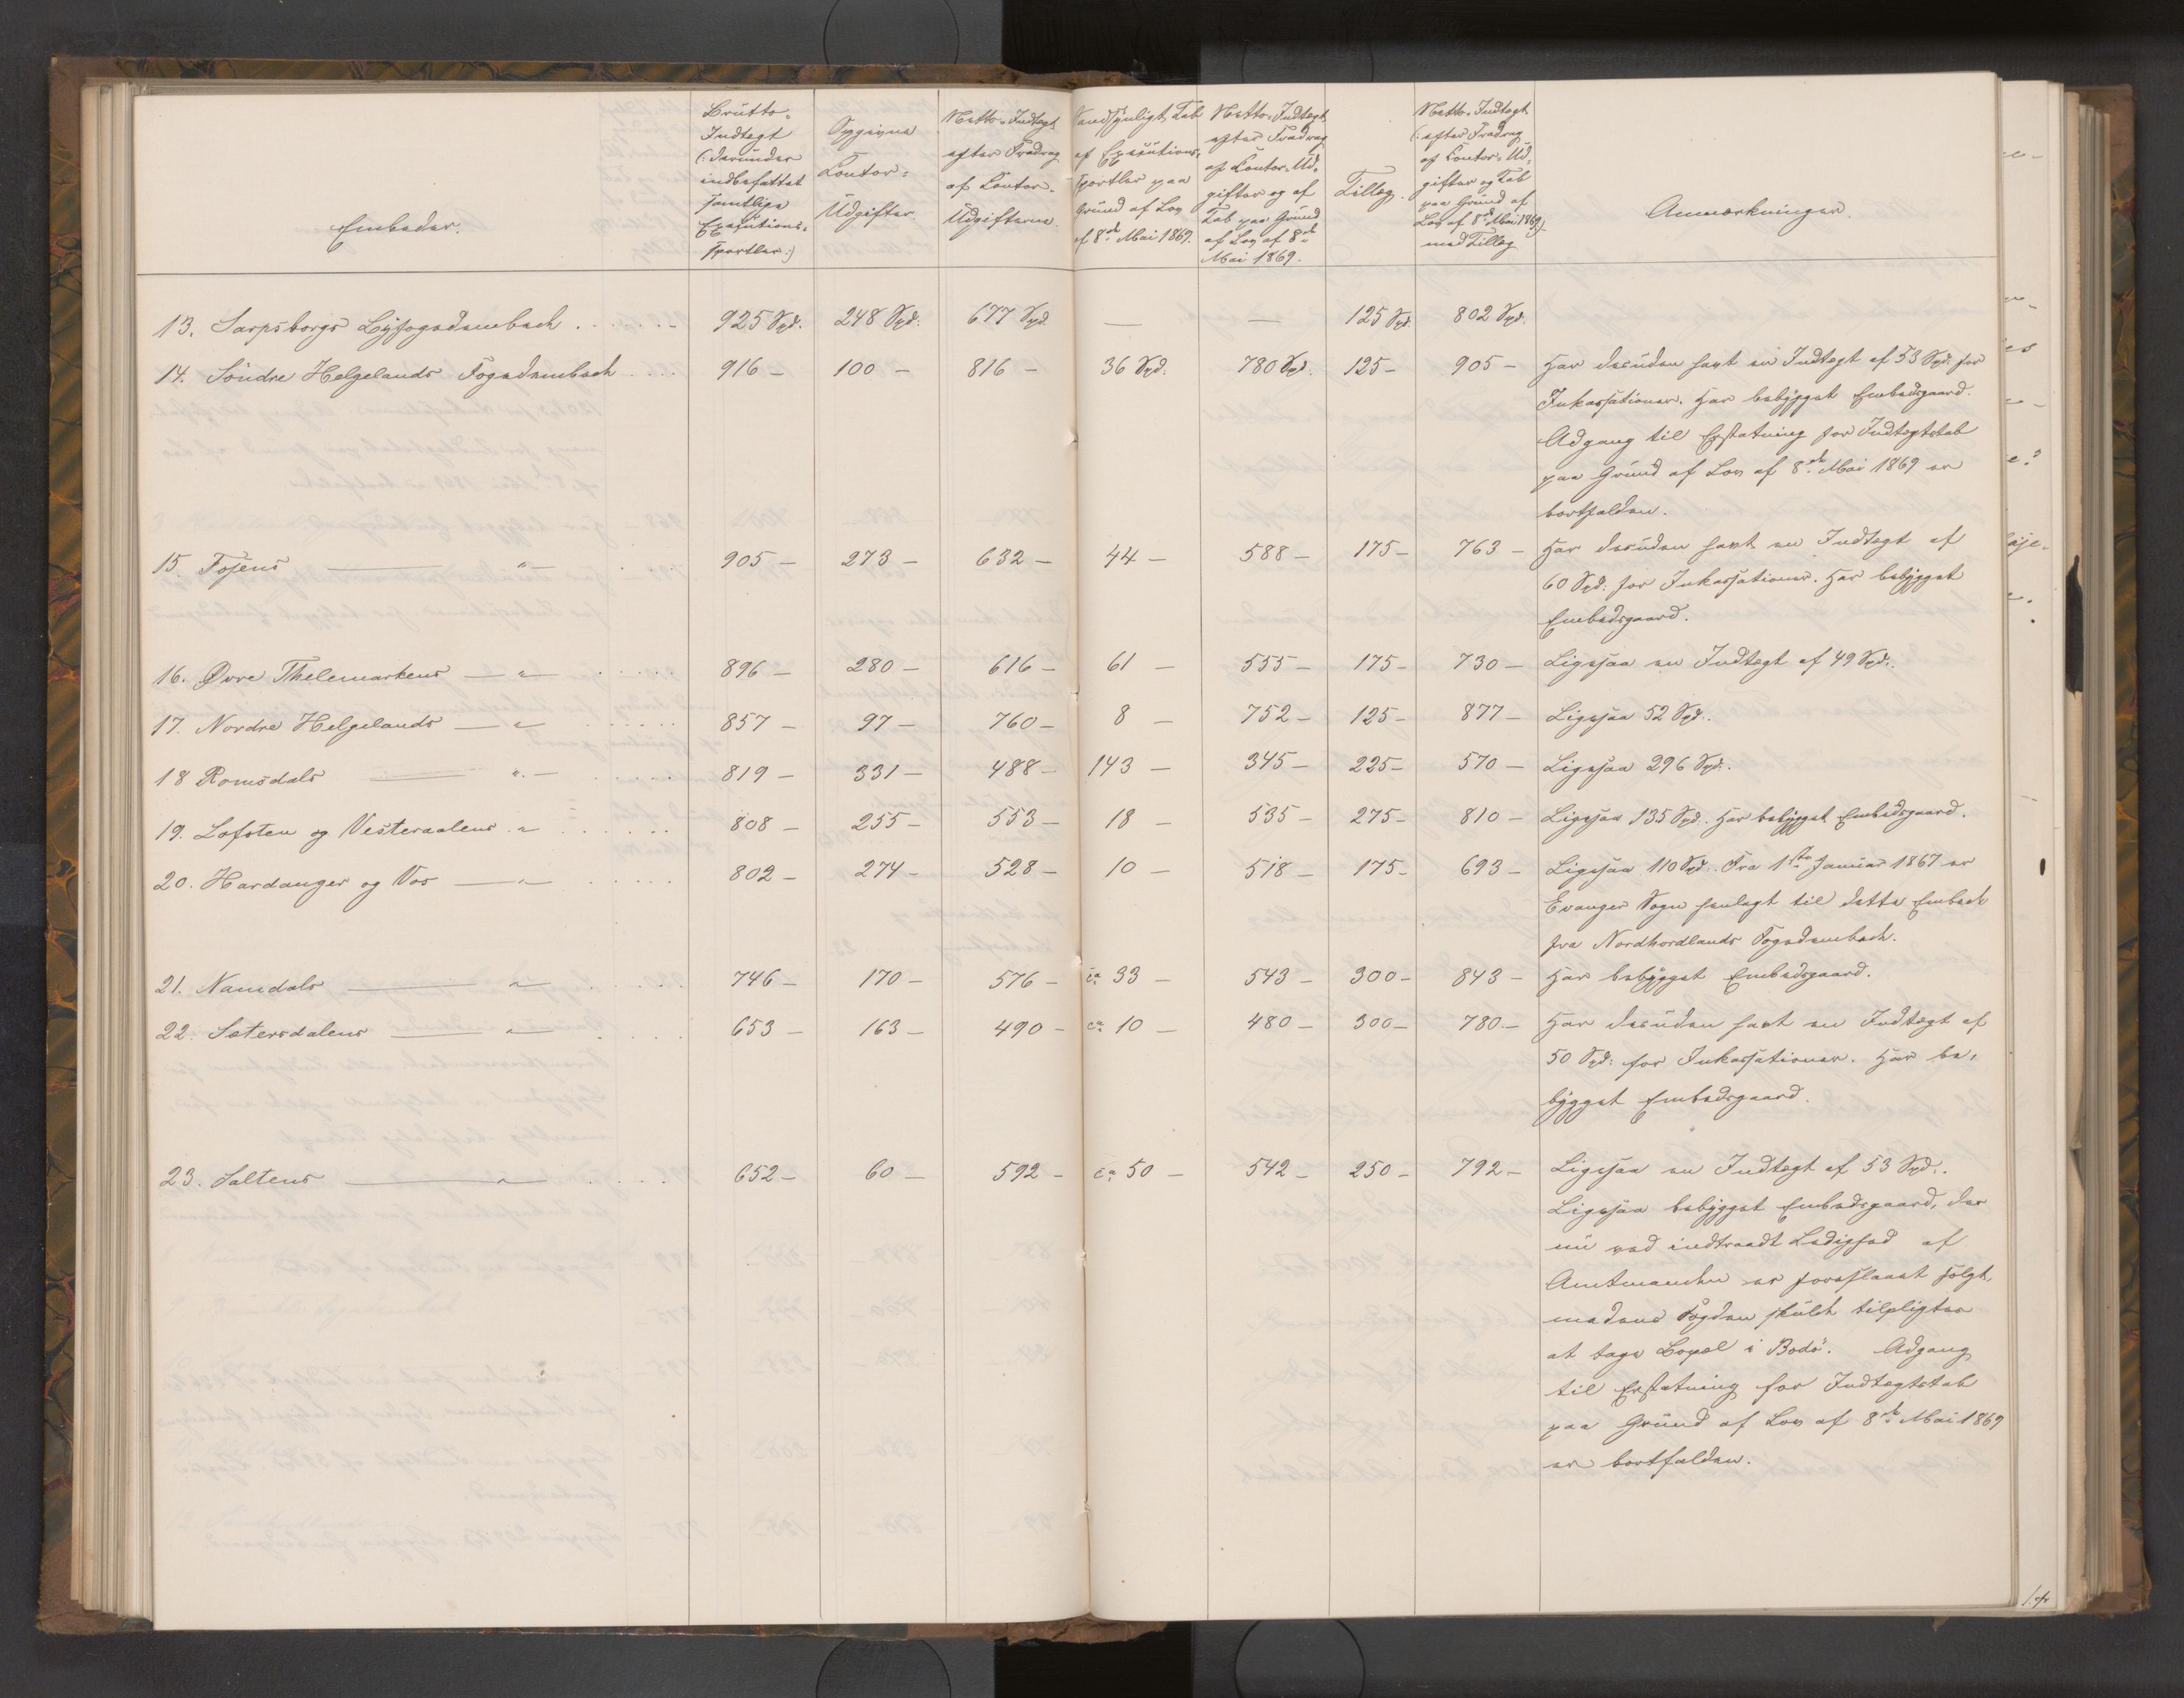 Embeder.
Brutto-
Indtægt
(: derunder
indbefattet
samtlige
Exekutions-
sportler :)
Opgivne
Kontor-
Udgifter.
Netto-Indtægt
efter Fradrag
af Kontor-
Udgifterne.
Sandsynligt Tab
af Exekutions-
sportler paa
Grund af Lov
af 8de Mai 1869.
Netto-Indtægt
efter Fradrag
af Kontor-Ud-
gifter og af
Tab paa Grund
af Lov af 8de
Mai 1869.
Tillæg.
Netto-Indtægt
(: efter Fradrag
af Kontor-Ud-
gifter og Tab
paa Grund af
Lov af 8de Mai 1869 :)
med Tillæg
Anmærkninger.
13. Sarpsborgs Byfogedembede . . . . . . 925 Spd. 248 Spd. 677 Spd. — — 125 Spd. 802 Spd.
14. Søndre Helgelands Fogedembede . . . . 916 — 100 — 816 — 36 Spd. 780 Spd. 125 — 905 — Har desuden havt en Indtægt af 53 Spd. for
Inkassationer. Har bebygget Embedsgaard.
Adgang til Erstatning for Indtægtstab
paa Grund af Lov af 8de Mai 1869 er
bortfalden.
15. Fosens — " — . . . 905 — 273 — 632 — 44 — 588 — 175 — 763 — Har desuden havt en Indtægt af
60 Spd. for Inkassationer. Har bebygget
Embedsgaard.
16. Øvre Thelemarkens — " — . . . . . 896 — 280 — 616 — 61 — 555 — 175 — 730 — Ligesaa en Indtægt af 49 Spd.
17. Nordre Helgelands — " — . . . . . . 857 — 97 — 760 — 8 — 752 — 125 — 877 — Ligesaa 52 Spd.
18 Romsdals — " — . . . . . 819 — 331 — 488 — 143 — 345 — 225 — 570 — Ligesaa 296 Spd.
19. Lofoten og Vesteraalens " . . . . . . 808 — 255 — 553 — 18 — 535 — 275 — 810 — Ligesaa 135 Spd. Har bebygget Embedsgaard.
20. Hardanger og Vos — " — . . . . . 802 — 274 — 528 — 10 — 518 — 175 — 693 — Ligesaa 110 Spd. Fra 1ste Januar 1867 er
Evanger Sogn henlagt til dette Embede
fra Nordhordlands Fogedembede.
21. Namdals — " — . . . . . 746 — 170 — 576 — ca 33 — 543 — 300 — 843 — Har bebygget Embedsgaard.
22. Sætersdalens — " — . . . . 653 — 163 — 490 — ca 10 — 480 — 300 — 780 — Har desuden havt en Indtægt af
50 Spd. for Inkassationer. Har be-
bygget Embedsgaard.
23. Saltens — " — . . . . 652 — 60 — 592 — ca 50 — 542 — 250 — 792 — Ligesaa en Indtægt af 53 Spd.
Ligesaa bebygget Embedsgaard, der
nu ved indtraadt Ledighed af
Amtmanden er foreslaaet solgt,
medens Fogden skulde tilpligtes
at tage Bopæl i Bodø. Adgang
til Erstatning for Indtægtstab
paa Grund af Lov af 8de Mai 1869
er bortfalden.